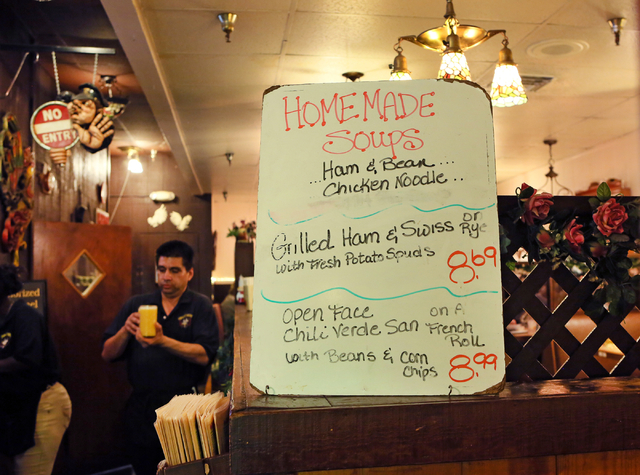 HOMEMADE
SOUPS
Ham & Bean...
...Chicken Noodle..
Grilled Ham & Swiss on Rye
with Fresh Potato Spuds
8.69
OPEN FACE
Chili Verde San
on A
French
Roll
with Beans & Corn
Chips
8.99
NO
ENTRY